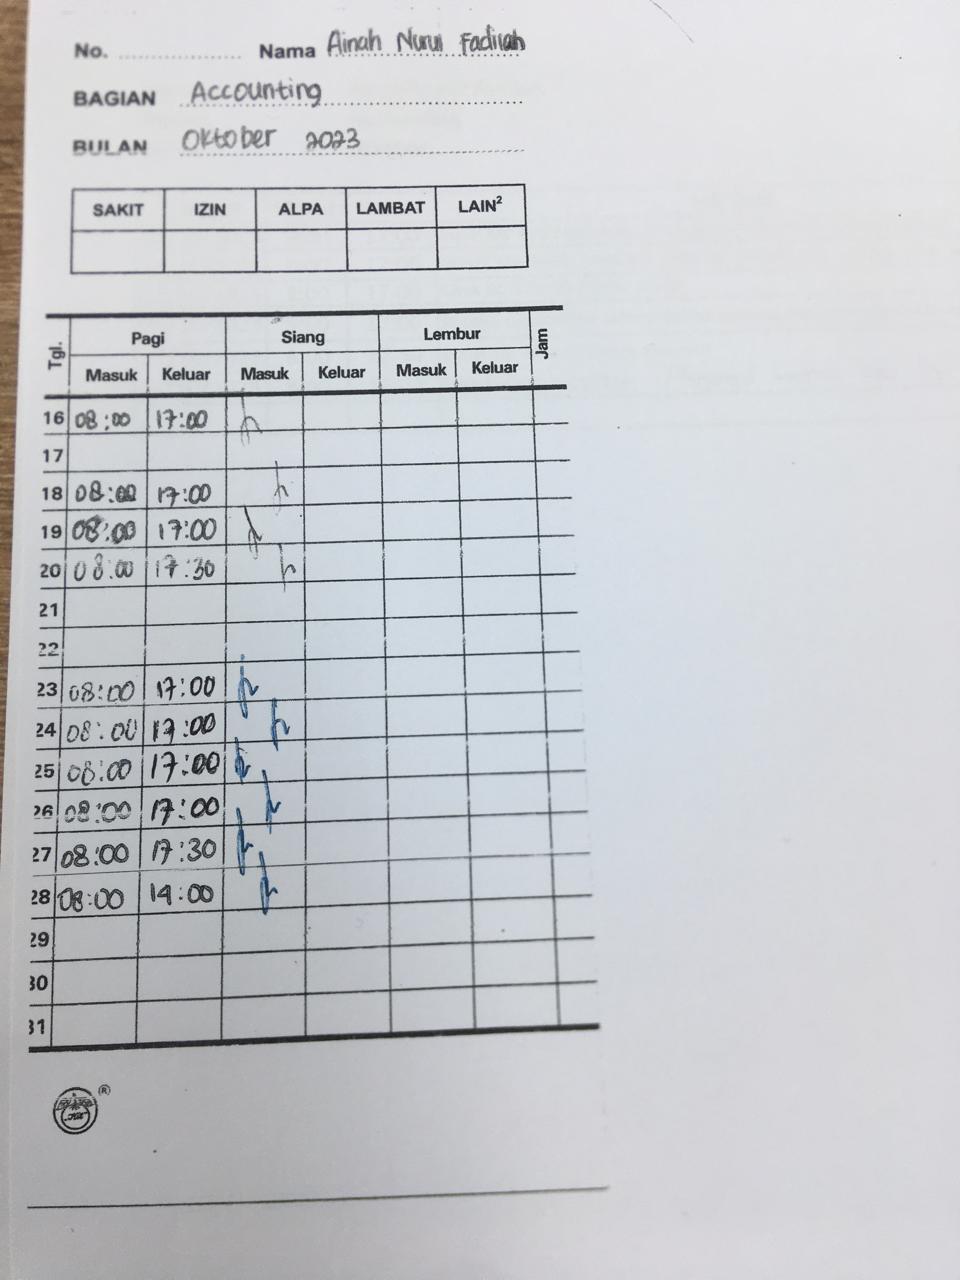 No. .................. Nama Ainah Nurul Fadilah
BAGIAN Accounting
BULAN Oktober 2023
SAKIT IZIN ALPA LAMBAT LAIN²
Tgl. Pagi Siang Lembur Jam
Masuk Keluar Masuk Keluar Masuk Keluar
16 08:00 17:00
17
18 08:00 17:00
19 08:00 17:00
20 08.00 17:30
21
22
23 08:00 17:00
24 08:00 17:00
25 08:00 17:00
26 08:00 17:00
27 08:00 17:30
28 08:00 14:00
29
30
31
®